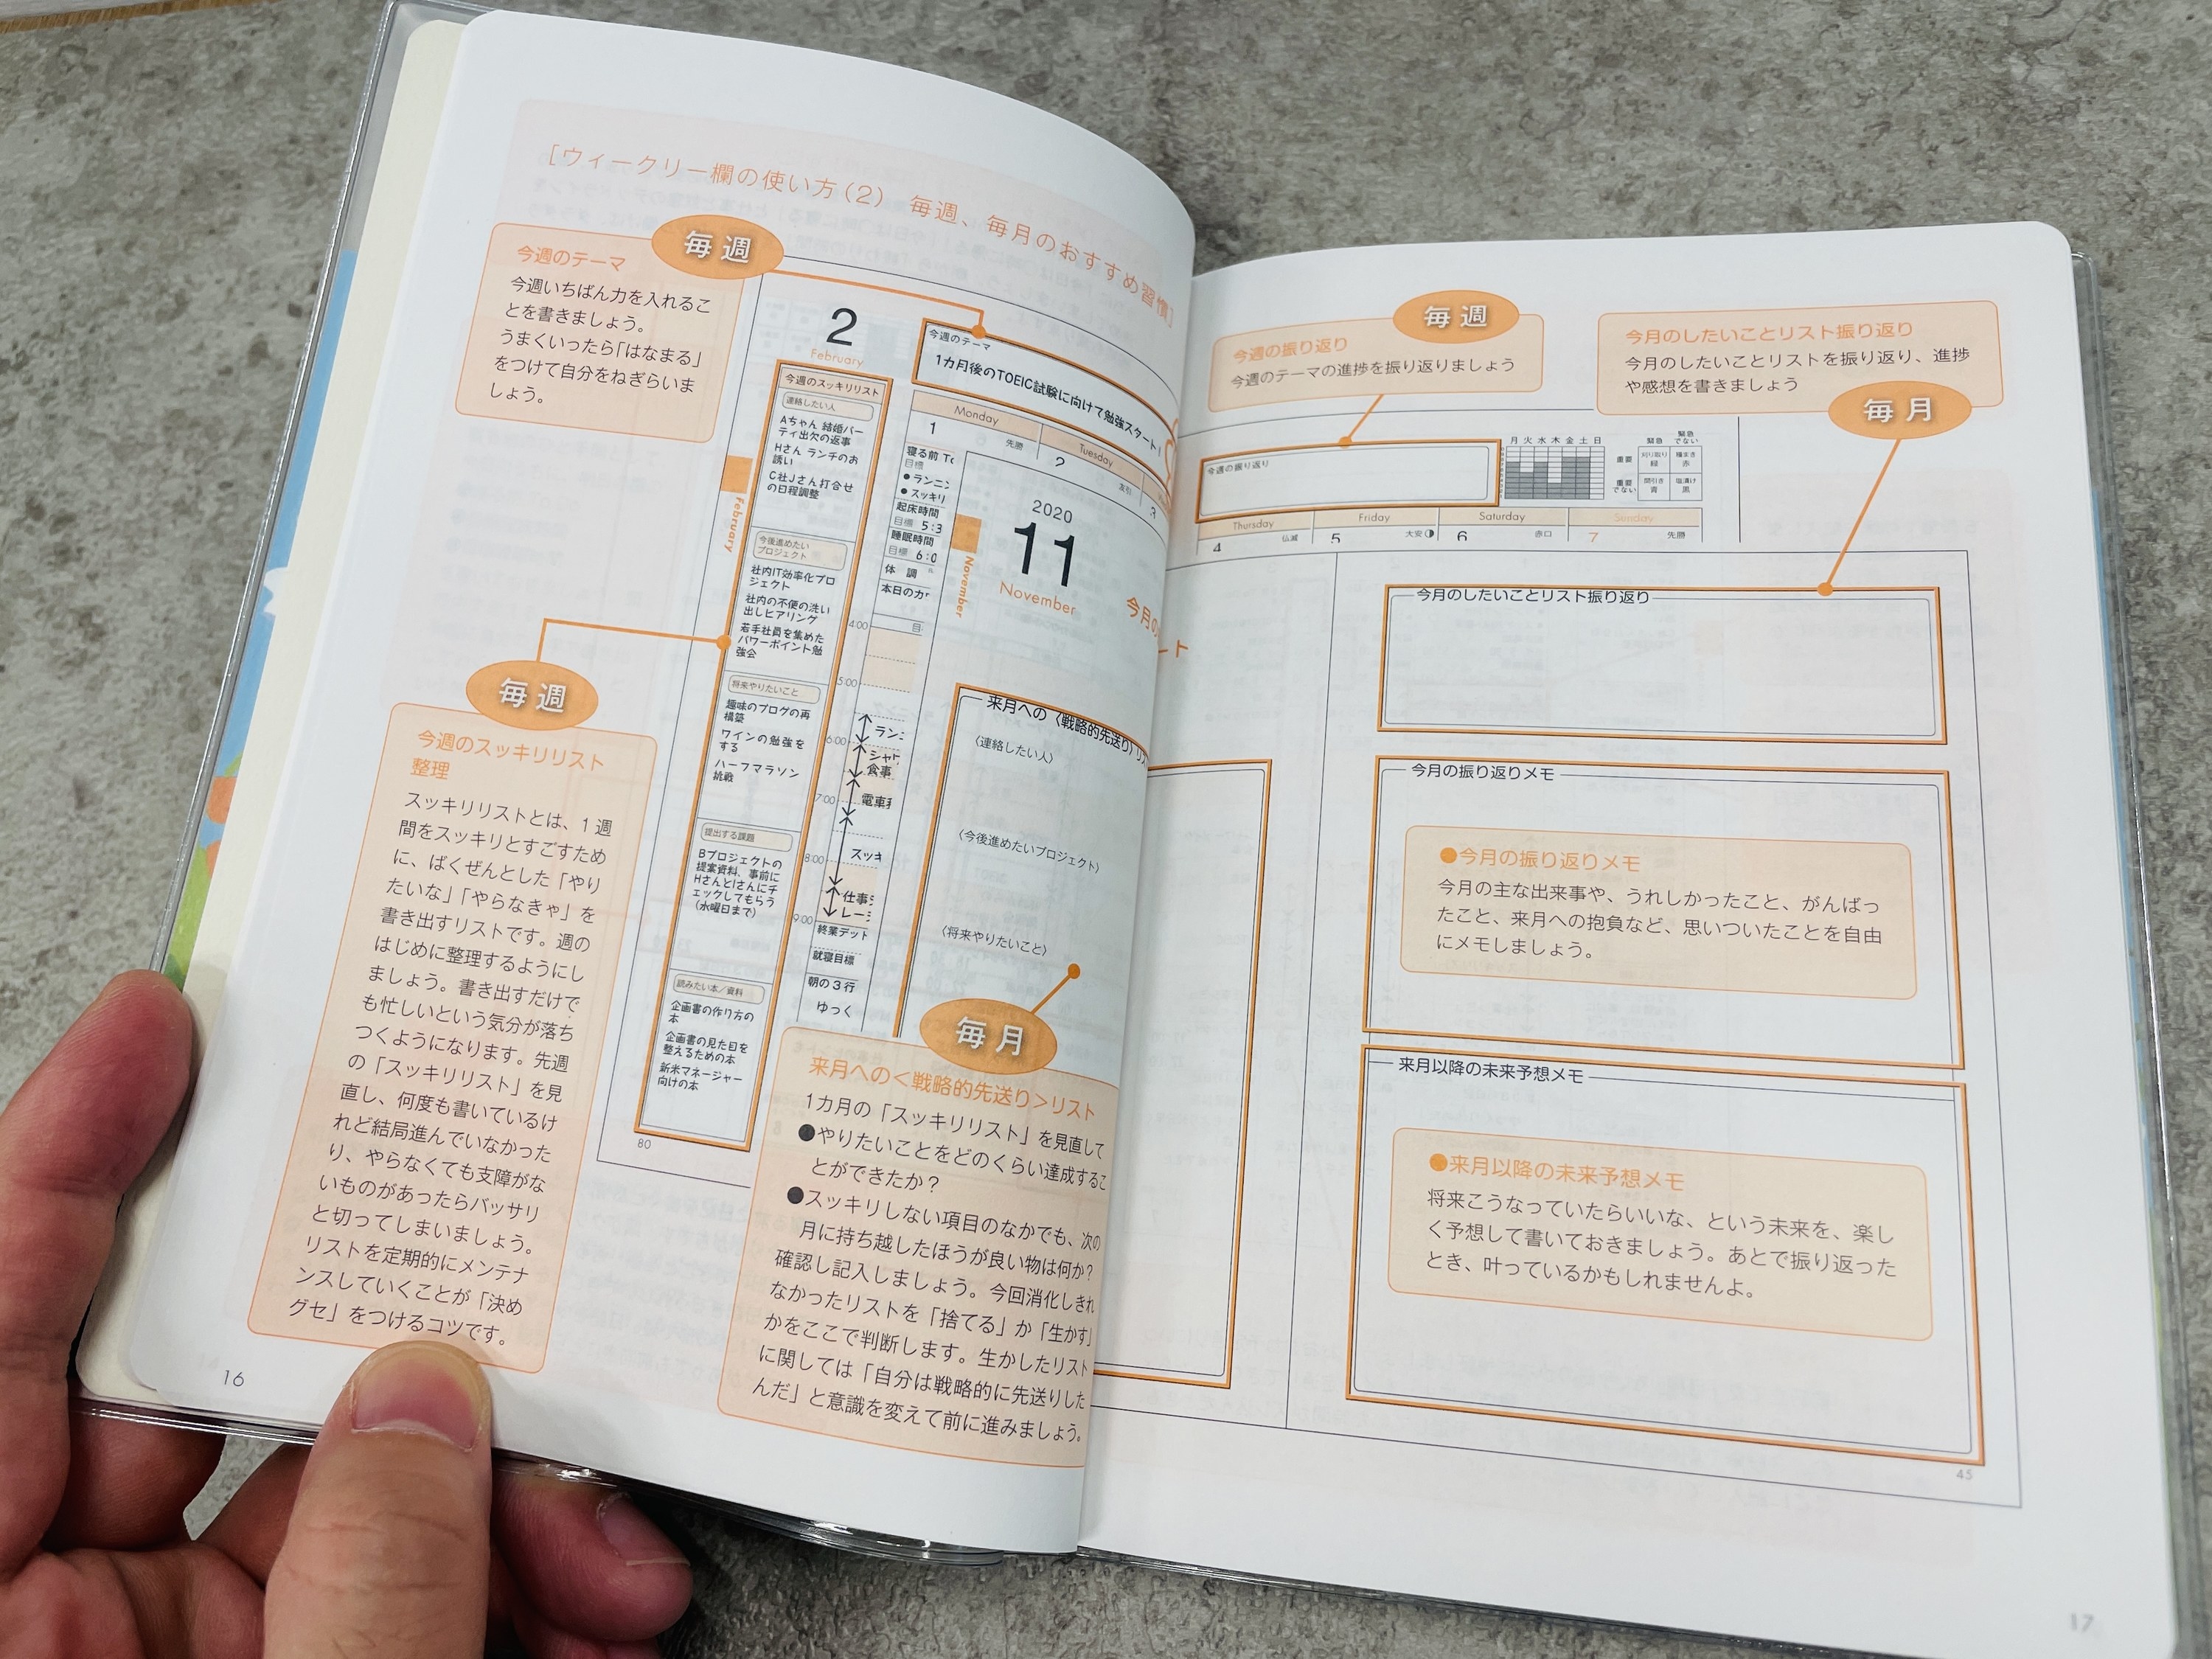 [ウィークリー欄の使い方(2) 毎週、毎月のおすすめ習慣]
毎週
今週のテーマ
今週いちばん力を入れるこ
とを書きましょう。
うまくいったら「はなまる」
をつけて自分をねぎらいま
しょう。
毎週
今週のスッキリリスト
整理
スッキリリストとは、1週
間をスッキリとすごすため
に、ばくぜんとした「やり
たいな」「やらなきゃ」を
書き出すリストです。週の
はじめに整理するようにし
ましょう。書き出すだけで
も忙しいという気分が落ち
つくようになります。先週
の「スッキリリスト」を見
直し、何度も書いているけ
れど結局進んでいなかった
り、やらなくても支障がな
いものがあったらバッサリ
と切ってしまいましょう。
リストを定期的にメンテナ
ンスしていくことが「決め
グセ」をつけるコツです。
16
2
February
February
今週のスッキリリスト
連絡したい人
Aちゃん 結婚パー
ティ出欠の返事
Hさん ランチのお
誘い
C社Jさん打合せ
の日程調整
今後進めたい
プロジェクト
社内IT効率化プロ
ジェクト
社内の不便の洗い
出しヒアリング
若手社員を集めた
パワーポイント勉
強会
将来やりたいこと
趣味のブログの再
構築
ワインの勉強を
する
ハーフマラソン
挑戦
提出する課題
Bプロジェクトの
提案資料、事前に
HさんとIさんにチ
ェックしてもらう
(水曜日まで)
読みたい本/資料
企画書の作り方の
本
企画書の見た目を
整えるための本
新米マネージャー
向けの本
80
今週のテーマ
1カ月後のTOEIC試験に向けて勉強スタート!
Monday
1 先勝
Tuesday
2 友引
3
寝る前
目標
●ランニン
●スッキリ
起床時間
目標 5:3
睡眠時間
目標 6:0
体 調
本日のカ
目
4:00
5:00
6:00
7:00
8:00
9:00
ラン
シャ
食事
電車
スッキ
仕事
レー
終業デット
就寝目標
朝の3行
ゆっく
2020
11
November
November
今月の
ート
来月への〈戦略的先送り〉リス
〈連絡したい人〉
〈今後進めたいプロジェクト〉
〈将来やりたいこと〉
毎月
来月への<戦略的先送り>リスト
1カ月の「スッキリリスト」を見直して
●やりたいことをどのくらい達成するこ
とができたか?
●スッキリしない項目のなかでも、次の
月に持ち越したほうが良い物は何か?
確認し記入しましょう。今回消化しきれ
なかったリストを「捨てる」か「生かす」
かをここで判断します。生かしたリスト
に関しては「自分は戦略的に先送りした
んだ」と意識を変えて前に進みましょう。
毎週
今週の振り返り
今週のテーマの進捗を振り返りましょう
今月のしたいことリスト振り返り
今月のしたいことリストを振り返り、進捗
や感想を書きましょう
毎月
今週の振り返り
月 火 水 木 金 土 日
緊急
緊急
でない
重要
刈り取り
緑
種まき
赤
重要
でない
間引き
青
塩漬け
黒
Thursday
4 仏滅
Friday
5 大安
Saturday
6 赤口
Sunday
7 先勝
今月のしたいことリスト振り返り
今月の振り返りメモ
●今月の振り返りメモ
今月の主な出来事や、うれしかったこと、がんばっ
たこと、来月への抱負など、思いついたことを自由
にメモしましょう。
来月以降の未来予想メモ
●来月以降の未来予想メモ
将来こうなっていたらいいな、という未来を、楽し
く予想して書いておきましょう。あとで振り返った
とき、叶っているかもしれませんよ。
45
17